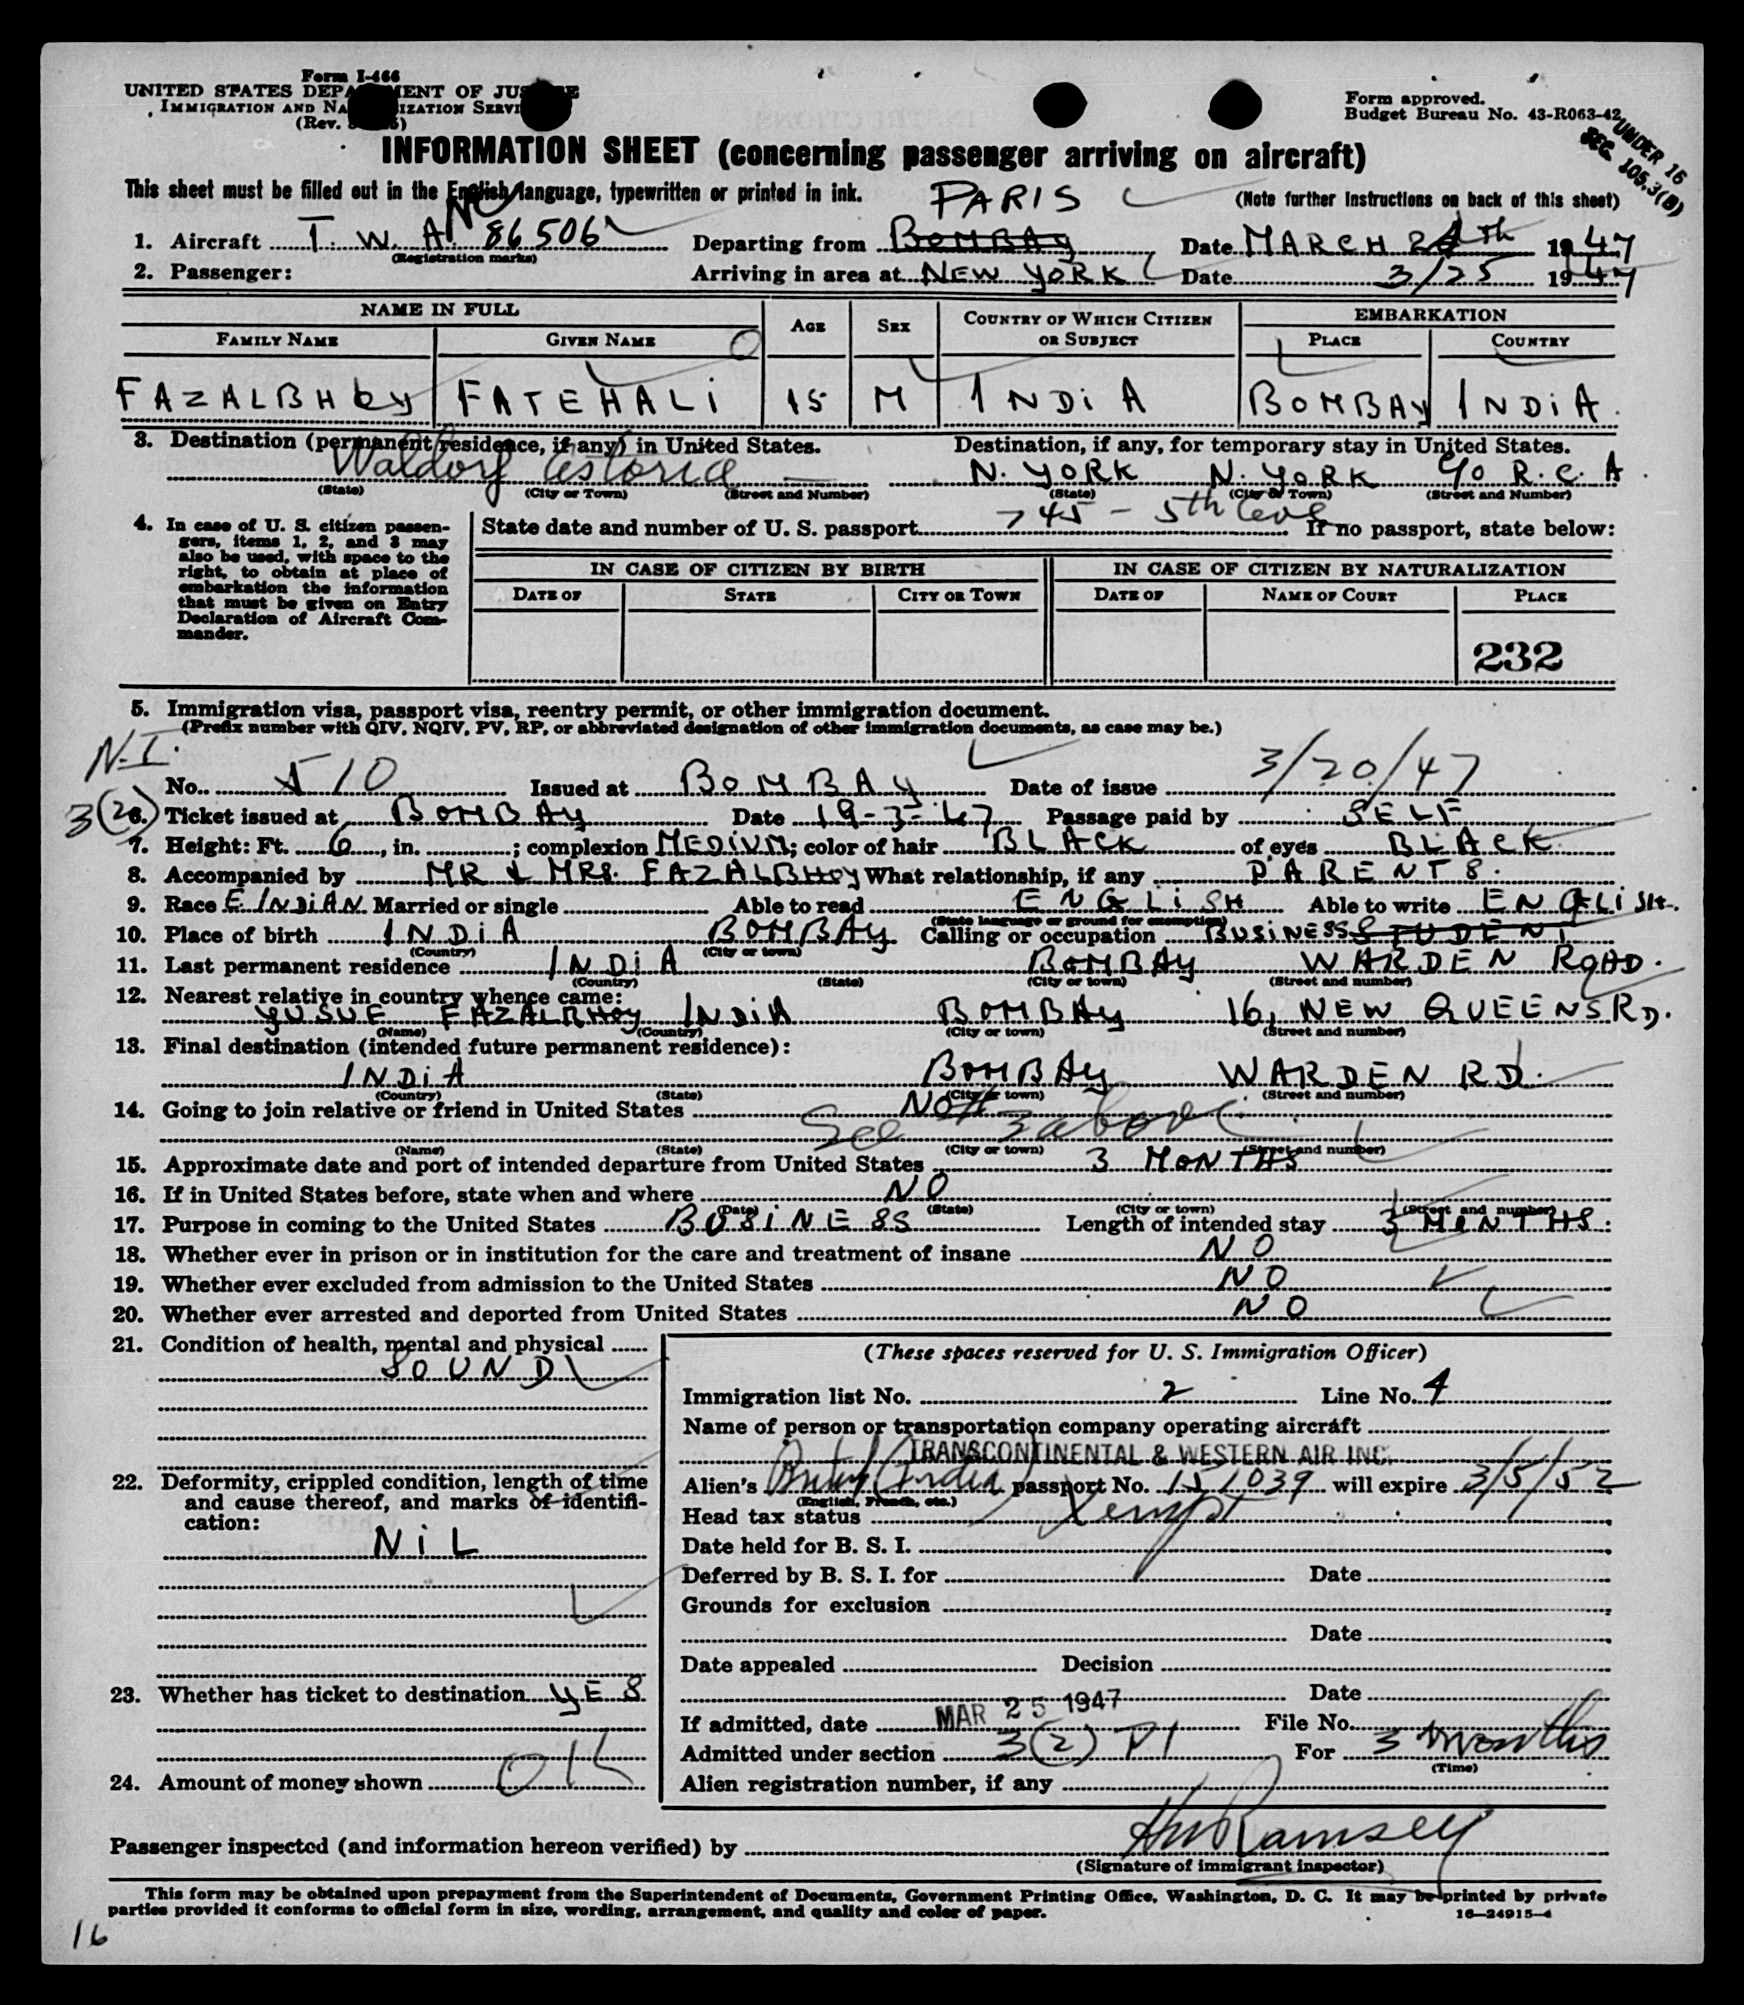 Form I-466
UNITED STATES DEPARTMENT OF JUSTICE
IMMIGRATION AND NATURALIZATION SERVICE
(Rev.
Form approved.
Budget Bureau No. 43-R063-42
UNDER 16
SEC. 105.3(B)
INFORMATION SHEET (concerning passenger arriving on aircraft)
This sheet must be filled out in the English language, typewritten or printed in ink.
PARIS
(Note further instructions on back of this sheet)
1. Aircraft T. W. A. NC 86506 Departing from BOMBAY Date MARCH 24th 1947
(Registration marks)
2. Passenger: Arriving in area at NEW YORK Date 3/25 1947
NAME IN FULL AGE SEX COUNTRY OF WHICH CITIZEN OR SUBJECT EMBARKATION
FAMILY NAME GIVEN NAME PLACE COUNTRY
FAZALBHOY FATEHALI 15 M INDIA BOMBAY INDIA.
3. Destination (permanent residence, if any) in United States. Destination, if any, for temporary stay in United States.
Waldorf Astoria — N. YORK N. YORK C/o R.C.A
(State) (City or Town) (Street and Number) (State) (City or Town) (Street and Number)
745 - 5th Ave
4. In case of U. S. citizen passengers, items 1, 2, and 3 may also be used, with space to the right, to obtain at place of embarkation the information that must be given on Entry Declaration of Aircraft Commander.
State date and number of U. S. passport If no passport, state below:
IN CASE OF CITIZEN BY BIRTH IN CASE OF CITIZEN BY NATURALIZATION
DATE OF STATE CITY OR TOWN DATE OF NAME OF COURT PLACE
232
5. Immigration visa, passport visa, reentry permit, or other immigration document.
(Prefix number with QIV, NQIV, PV, RP, or abbreviated designation of other immigration documents, as case may be.)
N.I.
No. 510 Issued at BOMBAY Date of issue 3/20/47
3(2)
6. Ticket issued at BOMBAY Date 19-3-47 Passage paid by SELF
7. Height: Ft. 6, in. ; complexion MEDIUM; color of hair BLACK of eyes BLACK
8. Accompanied by MR & MRS. FAZALBHOY What relationship, if any PARENTS.
9. Race E INDIAN Married or single Able to read ENGLISH Able to write ENGLISH.
(State language or ground for exemption)
10. Place of birth INDIA BOMBAY Calling or occupation BUSINESS STUDENT
(Country) (City or town)
11. Last permanent residence INDIA BOMBAY WARDEN ROAD.
(Country) (State) (City or town) (Street and number)
12. Nearest relative in country whence came:
YUSUF FAZALBHOY INDIA BOMBAY 16, NEW QUEENS RD.
(Name) (Country) (City or town) (Street and number)
13. Final destination (intended future permanent residence):
INDIA BOMBAY WARDEN RD.
(Country) (State) (City or town) (Street and number)
14. Going to join relative or friend in United States NO
See # 3 above
(Name) (State) (City or town) (Street and number)
15. Approximate date and port of intended departure from United States 3 MONTHS
16. If in United States before, state when and where NO
(Date) (State) (City or town) (Street and number)
17. Purpose in coming to the United States BUSINESS Length of intended stay 3 MONTHS.
18. Whether ever in prison or in institution for the care and treatment of insane NO
19. Whether ever excluded from admission to the United States NO
20. Whether ever arrested and deported from United States NO
21. Condition of health, mental and physical
SOUND
22. Deformity, crippled condition, length of time and cause thereof, and marks of identification:
NIL
23. Whether has ticket to destination YES
24. Amount of money shown OK
(These spaces reserved for U. S. Immigration Officer)
Immigration list No. 2 Line No. 4
Name of person or transportation company operating aircraft
TRANSCONTINENTAL & WESTERN AIR INC.
Alien's British (India) passport No. 151039 will expire 3/5/52
(English, French, etc.)
Head tax status Exempt
Date held for B. S. I.
Deferred by B. S. I. for Date
Grounds for exclusion
Date
Date appealed Decision
Date
If admitted, date MAR 25 1947 File No.
Admitted under section 3(2) P1 For 3 months
(Time)
Alien registration number, if any
Passenger inspected (and information hereon verified) by Ramsey
(Signature of immigrant inspector)
This form may be obtained upon prepayment from the Superintendent of Documents, Government Printing Office, Washington, D. C. It may be printed by private
parties provided it conforms to official form in size, wording, arrangement, and quality and color of paper.
16—24915-4
16